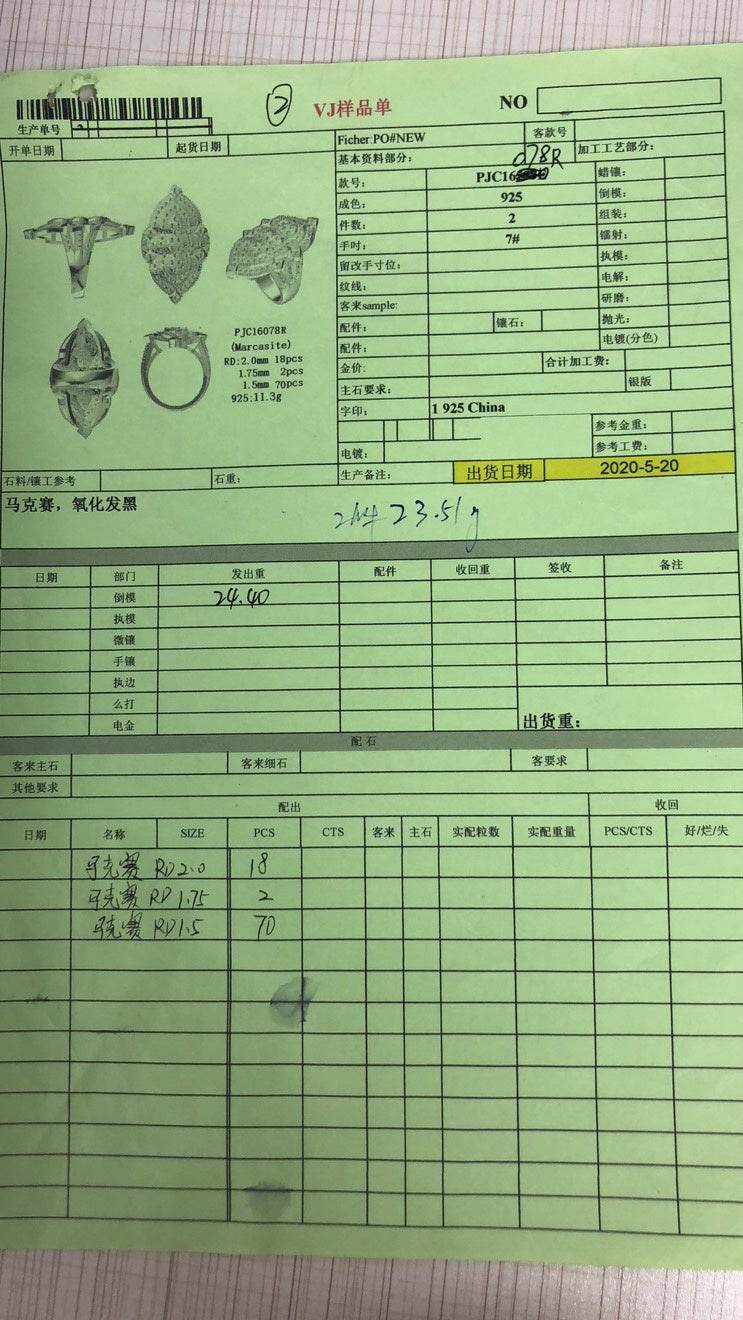 ② VJ样品单 NO
生产单号
开单日期 起货日期 Ficher:PO#NEW 客款号
基本资料部分: 078R 加工工艺部分:
款号: PJC16 蜡镶:
成色: 925 倒模:
件数: 2 组装:
手吋: 7# 镭射:
留改手寸位: 执模:
纹线: 电解:
客来sample: 研磨:
配件: 镶石: 抛光:
配件: 电镀(分色)
金价: 合计加工费:
主石要求: 银版
字印: 1 925 China
参考金重:
电镀: 参考工费:
PJC16078R
(Marcasite)
RD:2.0mm 18pcs
1.75mm 2pcs
1.5mm 70pcs
925:11.3g
石料/镶工参考 石重: 生产备注: 出货日期 2020-5-20
马克赛，氧化发黑
2件 23.51g
日期 部门 发出重 配件 收回重 签收 备注
倒模 24.40
执模
微镶
手镶
执边
么打
电金 出货重:
配石
客来主石 客来细石 客要求
其他要求
配出 收回
日期 名称 SIZE PCS CTS 客来 主石 实配粒数 实配重量 PCS/CTS 好/烂/失
马克赛 RD2.0 18
马克赛 RD1.75 2
马克赛 RD1.5 70